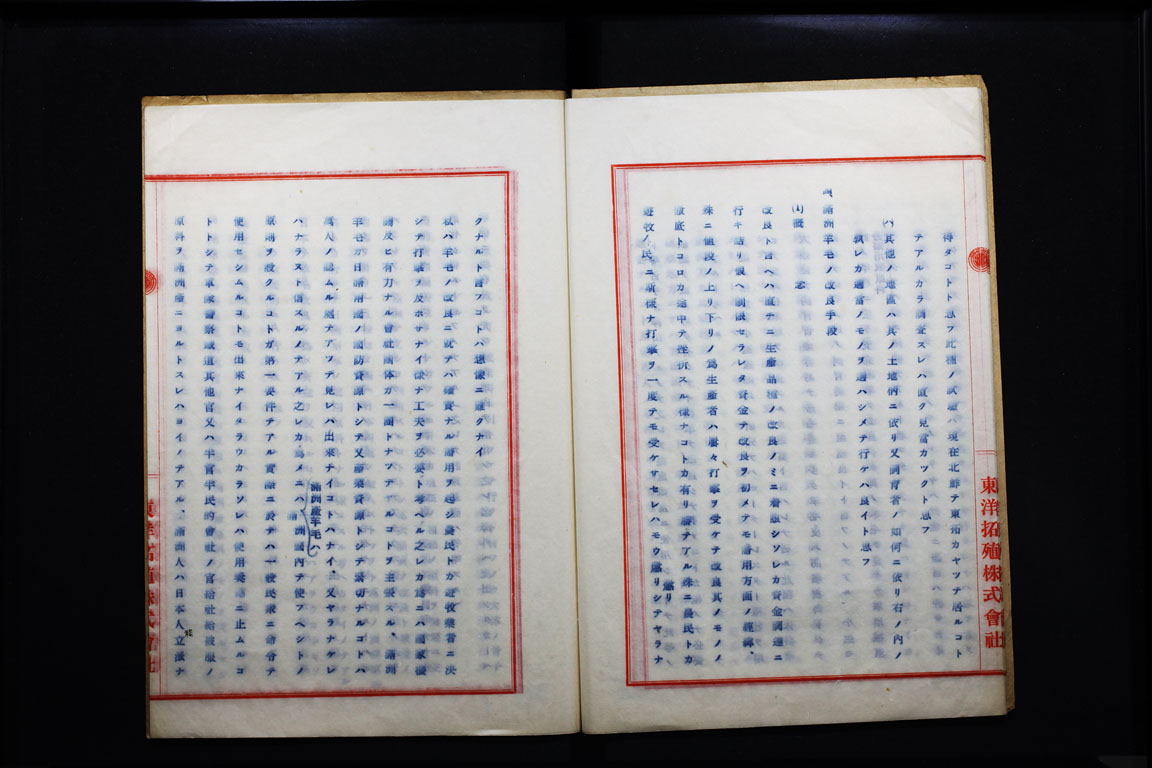 得タコトト思フ此種ノ試驗ハ現在北鮮テ東拓カヤツテ居ルコト
テアルカラ調査スレハ直ク見當カツクト思フ
其他ノ地區ハ其ノ土地柄ニ依リ又飼育者ノ如何ニ依リ右ノ内ノ
孰レカ適當ノモノヲ選ハシメテ行ケハ良イト思フ
滿洲羊毛ノ改良手段
(1) 概念
改良ト言ヘハ直チニ生產品種ノ改良ノミニ着眼シソレカ資金調達ニ
行キ詰リ限ヘ制限セラレタ資金テ改良ヲ初メテモ費用方面ノ經緯、
殊ニ値段ノ上リ下リノ爲生產者ハ屢々打擊ヲ受ケテ改良其ノモノノ
徹底トコロカ途中テ挫折スル樣ナコトカ有リ勝テアル殊ニ農民トカ
遊牧ノ民ニ斯樣ナ打擊ヲ一度テモ受ケサセレハモウ懲リシテヤラナ
懲リ
東洋拓殖株式會社
クナルト言フコトハ想像ニ難クナイ
私ハ羊毛ノ改良ニ就テハ確實ナル費用ヲ起シ農民トカ遊牧業者ニ決
シテ打擊ヲ及ホサナイ樣ナ工夫ヲ必要ト考ヘル之レカ爲ニハ國家機
關及ヒ有力ナル會社團体カ一團トナツテヤルコトヲ主張スル、滿洲
羊毛カ日滿兩國ノ國防資源トシテ又產業資源トシテ緊切ナルコトハ
萬人ノ認ムル處テアツテ見レハ出來ナイコトハナイ、又ヤラナケレ
ハナラヌト信スルノテアル之レカ爲メニハ滿洲國内テ使フヘシトノ
滿洲產羊毛ハ
原則ヲ設クルコトガ第一要件テアル實際ニ於テハ一般民衆ニ會合テ
使用セシムルコトモ出來ナイタラウカラソレハ使用獎勵ニ止ムルコ
トトシテ軍隊警察鐵道其他官又ハ半官半民的會社ノ官給社給被服ノ
原料ヲ滿洲繪ニヨルトスレハヨイノテアル、滿洲人ハ日本人人立派ナ
東洋拓殖株式會社